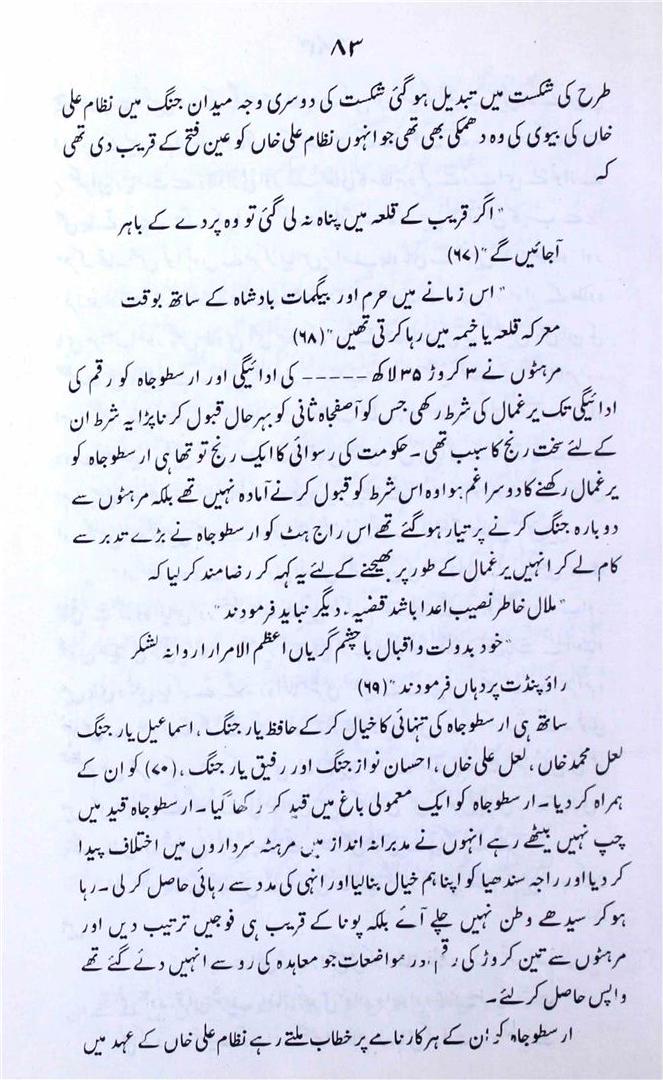 ۸۳
طرح کی شکست میں تبدیل ہو گئی شکست کی دوسری وجہ میدان جنگ میں نظام علی
خاں کی بیوی کی وہ دھمکی بھی تھی جو انہوں نظام علی خاں کو عین فتح کے قریب دی تھی
کہ
"اگر قریب کے قلعہ میں پناہ نہ لی گئی تو وہ پردے کے باہر
آجائیں گے" (۶۷)
"اس زمانے میں حرم اور بیگمات بادشاہ کے ساتھ بوقت
معرکہ قلعہ یا خیمہ میں رہا کرتی تھیں" (۶۸)
مرہٹوں نے ۳ کروڑ ۳۵ لاکھ ----- کی ادائیگی اور ارسطو جاہ کو رقم کی
ادائیگی تک یرغمال کی شرط رکھی جس کو آصفجاہ ثانی کو بہر حال قبول کرنا پڑا یہ شرط ان
کے لئے سخت رنج کا سبب تھی۔ حکومت کی رسوائی کا ایک رنج تو تھا ہی ارسطو جاہ کو
یرغمال رکھنے کا دوسرا غم ہوا وہ اس شرط کو قبول کرنے آمادہ نہیں تھے بلکہ مرہٹوں سے
دوبارہ جنگ کرنے پر تیار ہوگئے تھے اس راج ہٹ کو ارسطو جاہ نے بڑے تدبر سے
کام لے کر انہیں یرغمال کے طور پر بھیجنے کے لئے یہ کہہ کر رضامند کر لیا کہ
"ملال خاطر نصیب اعدا باشد قضیہ۔ دیگر نباید فرمودند"۔
"خود بدولت و اقبال با چشم گریاں اعظم الامرار اروانہ لشکر
راؤ پنڈت پردہاں فرمودند" (۶۹)
ساتھ ہی ارسطو جاہ کی تنہائی کا خیال کر کے حافظ یار جنگ، اسماعیل یار جنگ
لعل محمد خاں، لعل علی خاں، احسان نواز جنگ اور رفیق یار جنگ، (۷۰) کو ان کے
ہمراہ کر دیا۔ ارسطو جاہ کو ایک معمولی باغ میں قید کر رکھا گیا۔ ارسطو جاہ قید میں
چپ نہیں بیٹھے رہے انہوں نے مدبرانہ انداز میں مرہٹہ سرداروں میں اختلاف پیدا
کر دیا اور راجہ سندھیا کو اپنا ہم خیال بنالیا اور انہی کی مدد سے رہائی حاصل کر لی۔ رہا
ہو کر سیدھے وطن نہیں چلے آئے بلکہ پونا کے قریب ہی فوجیں ترتیب دیں اور
مرہٹوں سے تین کروڑ کی رقم اور مواضعات جو معاہدہ کی رو سے انہیں دئے گئے تھے
واپس حاصل کر لئے۔
ارسطو جاہ کو ان کے ہر کارنامے پر خطاب ملتے رہے نظام علی خاں کے عہد میں